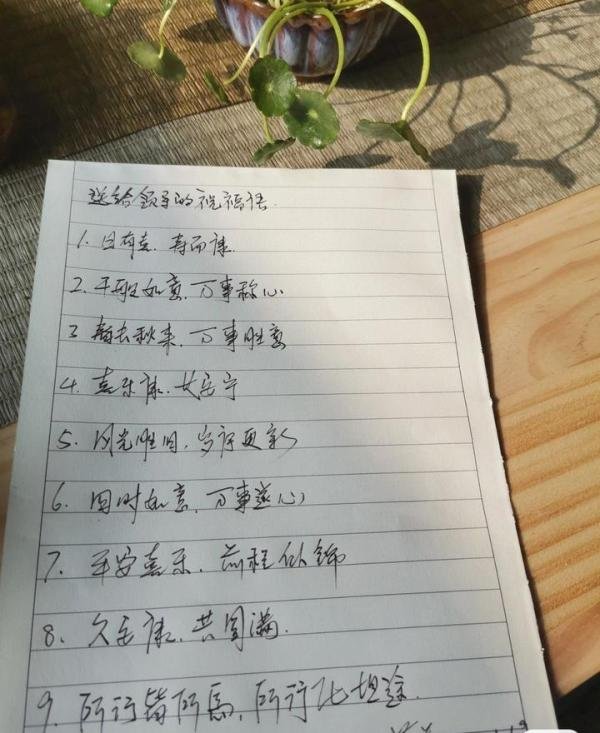 送给领导的祝福语
1. 日有熹，寿而康
2. 平顺如意，万事称心
3. 春去秋来，万事胜意
4. 喜乐康，久安宁
5. 风光胜旧，岁序更新
6. 四时如意，万事遂心
7. 平安喜乐，前程似锦
8. 久安康，共圆满
9. 所行皆所愿，所行化坦途